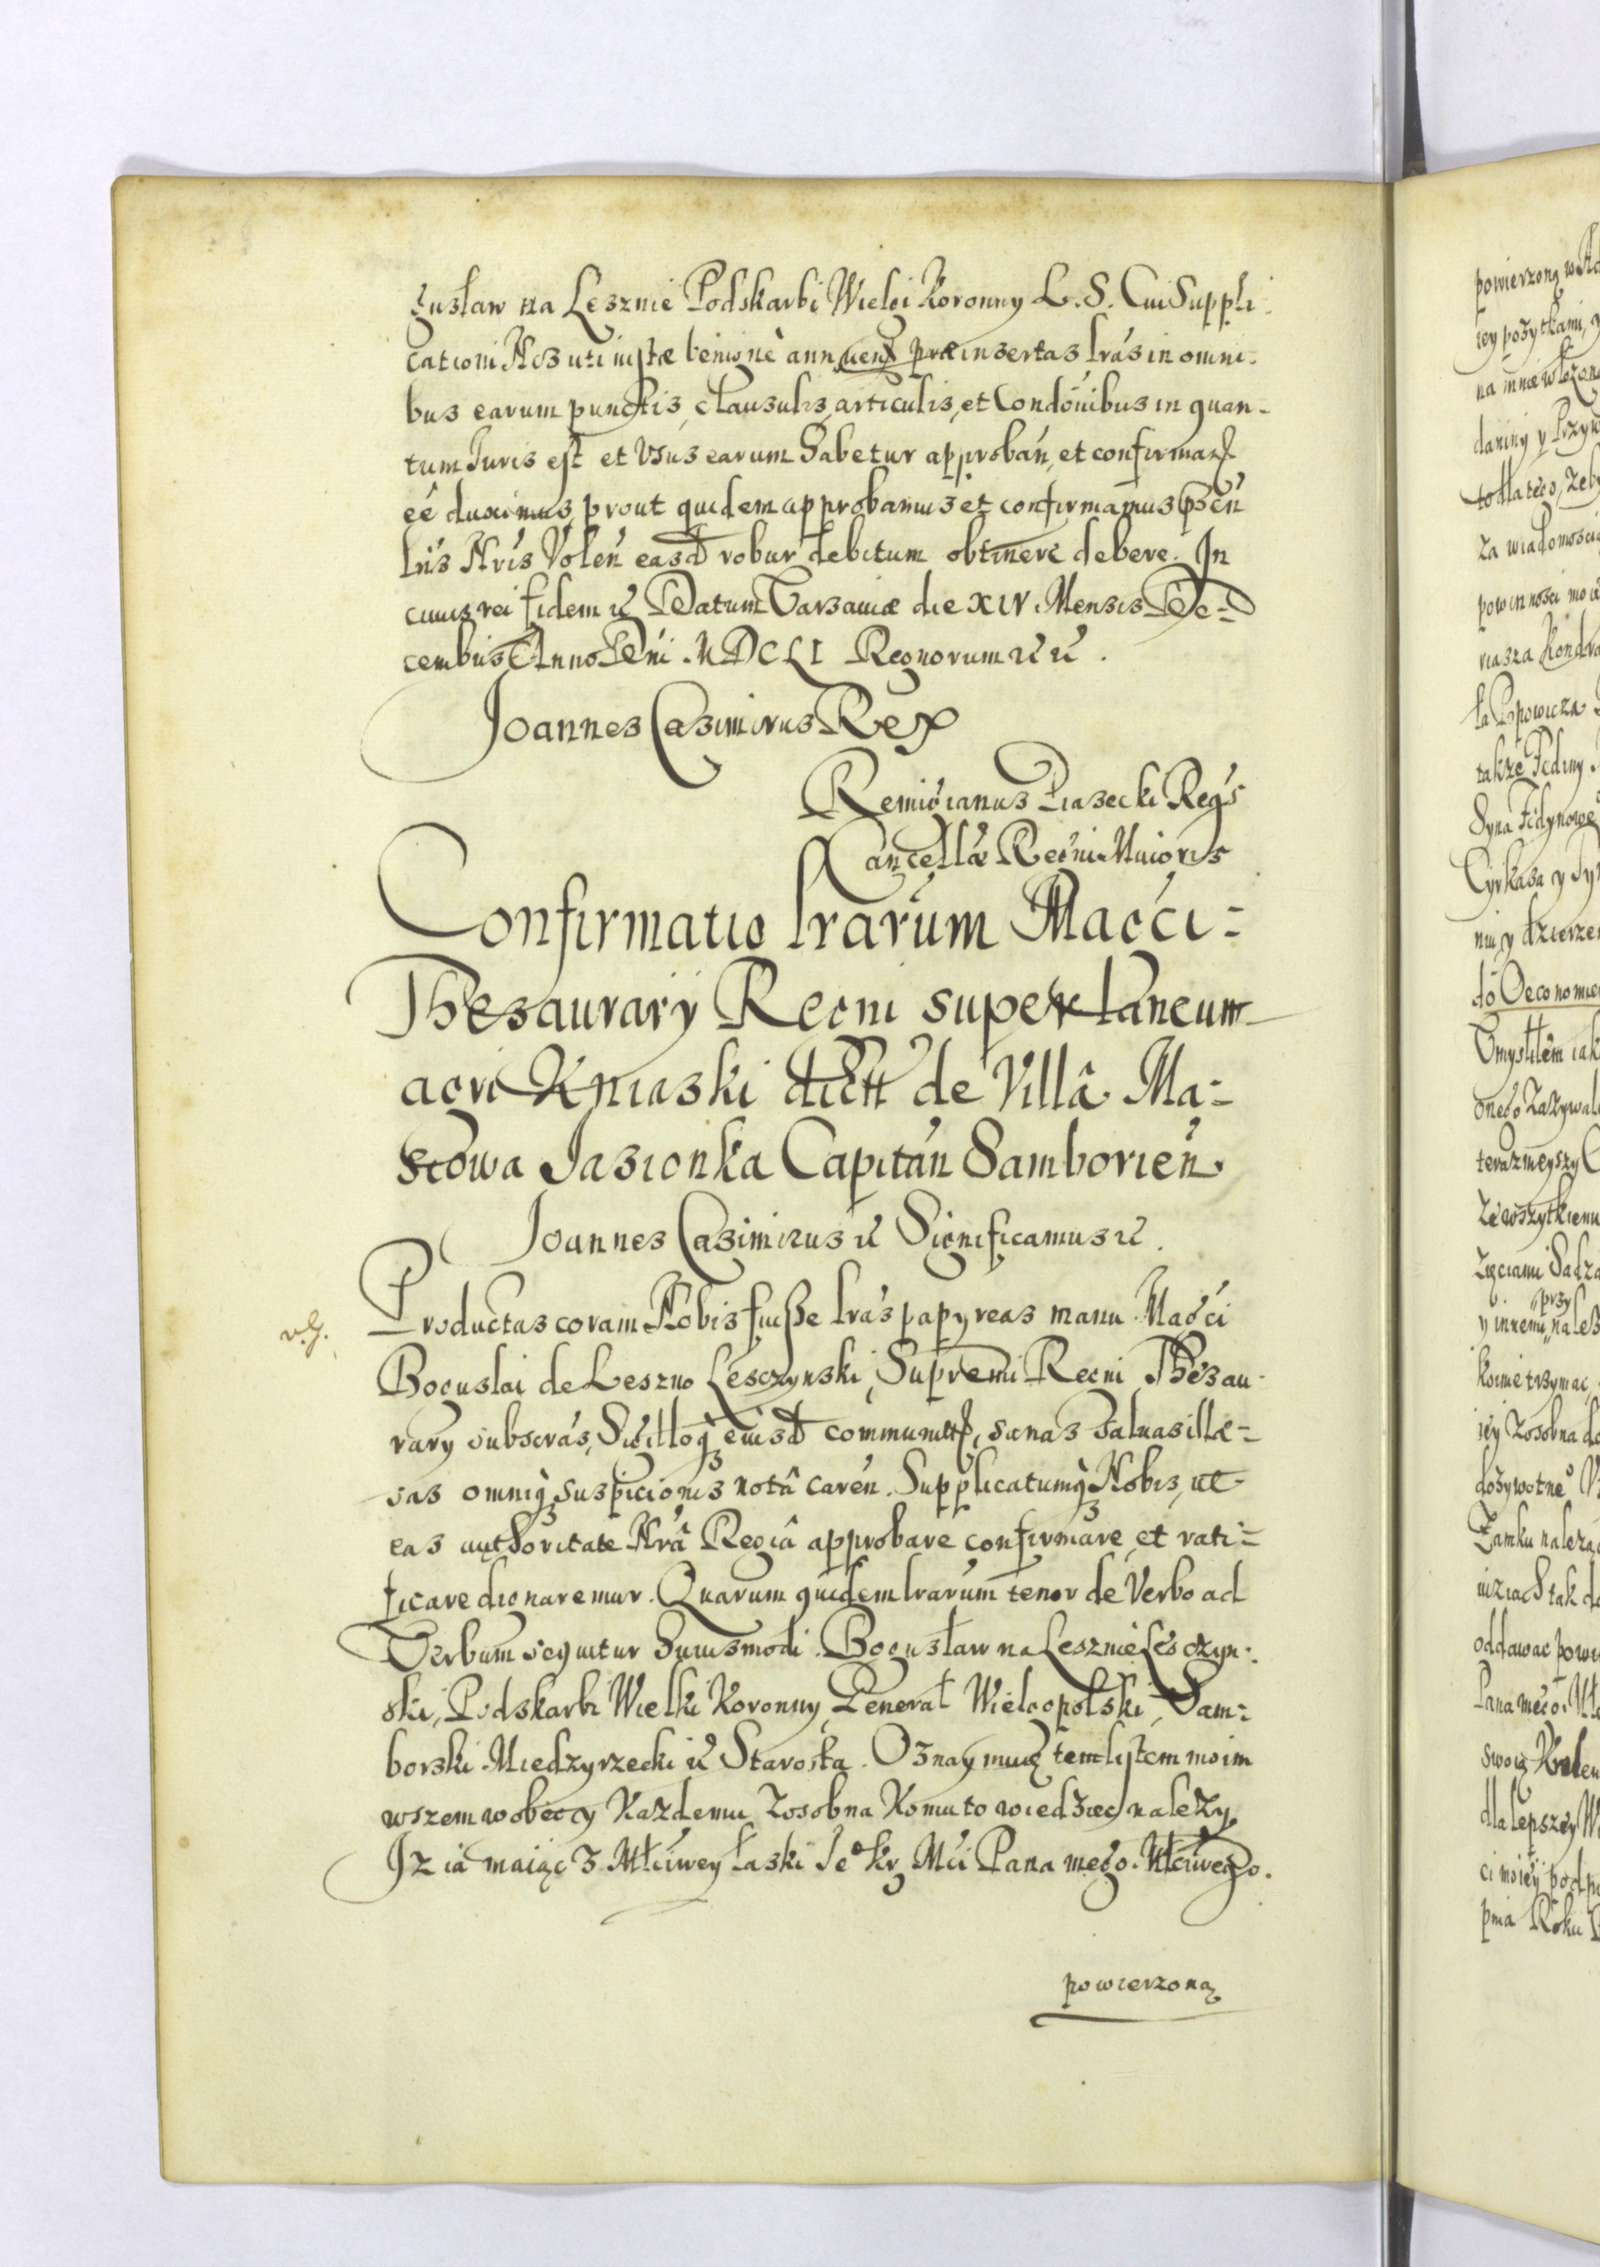 gusław na Lesznie Podskarbi Wielgi Koronny L. S. Cui Suppli-
cationi Nos uti iustæ benignè annuen præinsertas lrás in omni-
bus earum punctis, clausulis, articulis, et Condõnibus in quan-
tum Iuris est et Usus earum habetur approbań, et confirmań
eê duximus, prout quidem approbamus et confirmamus p̃sẽn
lris Nris Voleń easd robur debitum obtinere debere. In
cuius rei fidem &c Datum Varsaviæ die XIV. Mensis De=
cembris Anno Dñi. MDCLI Regnorum &c &c.
Joannes Casimirus Rex
Remigianus Piasecki Regs
Cancellæ Regni Maioris
Confirmatio lrarum Magci=
Thesaurarÿ Regni super laneum
agri Kniaski dictt de Villâ Ma=
scowa Jasionka Capitań Samborień
Joannes Casimirus &c Significamus &c.
v. g.
Productas coram Nobis fuisse lrás papyreas manu Magci
Boguslai de Leszno Lesczynski, Supremi Regni Thesau-
rarÿ subscrás, Sigilloq̃ eiusd communitt, sanas salvas illæ=
sas omniq̃ suspicionis notâ careń. Supplicatumq̃ Nobis, ut
eas authoritate Nrâ Regiâ approbare confirmare et rati=
ficare dignaremur. Quarum quidem lrarum tenor de Verbo ad
Verbum sequitur huiusmodi. Bogusław na Lesznie Lesczyn=
ski, Podskarbi Wielki Koronny, General Wielgopolski, Sam=
borski Miedzyrzecki &c Starosta. Oznaymuię tem listem moim
wszem wobec y Kazdemu zosobna Komu to wiedziec nalezy,
Iz ia maiąc z Młciwey łaski Jeº Kr Mci Pana mego Młciwego.
powierzoną
powierzoną w
iey pożytkami, y
daniny y Przyw
to dla tego, żeby
za wiadomością
powinności moie
riasza Kondra
ła Popowicza
także Fediny
Syna Fidynowe
niu y dzierze
do Oeconomie
Umyslilem iak
onego Zażywal
teraznieyszy
Ze wszytkiemu
przy
y innemi nalez
iey Zosobna do
dożywotne
Zamku należą
oddawac powi
Pana mego Mł
swoią
dla lepszey W
ci moiey podp
pnia Roku